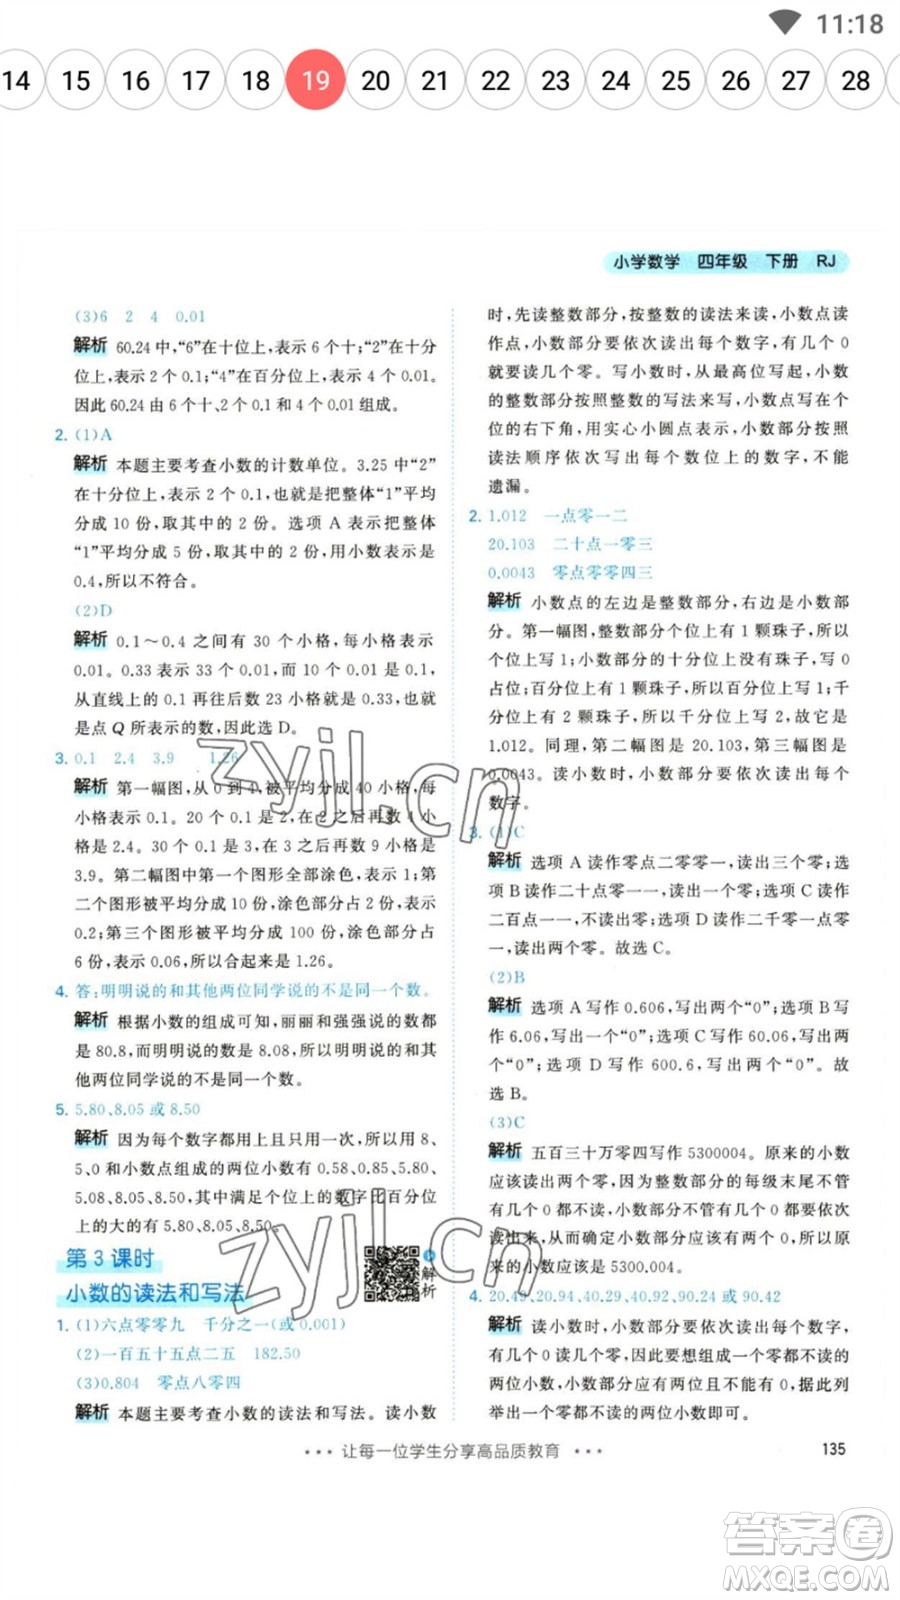 11:18
14 15 16 17 18 19 20 21 22 23 24 25 26 27 28
小学数学 四年级 下册 RJ
(3)6 2 4 0.01
解析 60.24 中,“6”在十位上,表示 6 个十;“2”在十分
位上,表示 2 个 0.1;“4”在百分位上,表示 4 个 0.01。
因此 60.24 由 6 个十、2 个 0.1 和 4 个 0.01 组成。
2. (1)A
解析 本题主要考查小数的计数单位。3.25 中“2”
在十分位上,表示 2 个 0.1,也就是把整体“1”平均
分成 10 份,取其中的 2 份。选项 A 表示把整体
“1”平均分成 5 份,取其中的 2 份,用小数表示是
0.4,所以不符合。
(2)D
解析 0.1～0.4 之间有 30 个小格,每小格表示
0.01。0.33 表示 33 个 0.01,而 10 个 0.01 是 0.1,
从直线上的 0.1 再往后数 23 小格就是 0.33,也就
是点 Q 所表示的数,因此选 D。
3. 0.1 2.4 3.9 1.26
解析 第一幅图,从 0 到 4,被平均分成 40 小格,每
小格是 0.1。20 个 0.1 是 2,在 2 之后再数 4 小
格是 2.4。30 个 0.1 是 3,在 3 之后再数 9 小格是
3.9。第二幅图中第一个图形全部涂色,表示 1;第
二个图形被平均分成 10 份,涂色部分占 2 份,表示
0.2;第三个图形被平均分成 100 份,涂色部分占
6 份,表示 0.06,所以合起来是 1.26。
4. 答:明明说的和其他两位同学说的不是同一个数。
解析 根据小数的组成可知,丽丽和强强说的数都
是 80.8,而明明说的是 8.08,所以明明说的数和其
他两位同学说的不是同一个数。
5. 5.80、8.05 或 8.50
解析 因为每个数字都用上且只用一次,所以用 8、
5、0 和小数点组成的两位小数有 0.58、0.85、5.80、
5.08、8.05、8.50,其中满足个位上的数字比百分位
上的大的有 5.80、8.05、8.50。
第 3 课时
小数的读法和写法
解析
1. (1)六点零零九 千分之一(或 0.001)
(2)一百五十五点二五 182.50
(3)0.804 零点八零四
解析 本题主要考查小数的读法和写法。读小数
时,先读整数部分,按整数的读法来读,小数点读
作点,小数部分要依次读出每个数字,有几个 0
就要读几个零。写小数时,从最高位写起,小数
的整数部分按照整数的写法来写,小数点写在个
位的右下角,用实心小圆点表示,小数部分按照
读法顺序依次写出每个数位上的数字,不能
遗漏。
2. 1.012 一点零一二
20.103 二十点一零三
0.0043 零点零零四三
解析 小数点的左边是整数部分,右边是小数部
分。第一幅图,整数部分个位上有 1 颗珠子,所以
个位上是 1;小数部分的十分位上没有珠子,用 0
占位;百分位上有 1 颗珠子,百分位上写 1;千分
位上有 2 颗珠子,千分位上写 2,故它是
1.012。同理,第二幅图是 20.103,第三幅图是
0.0043。读小数时,小数部分要依次读出每个
数字。
3. (1)C
解析 选项 A 读作零点二零零一,读出三个零;选
项 B 读作二十点零一一,读出一个零;选项 C 读作
二百点一一,不读出零;选项 D 读作二千零一点零
一,读出两个零。故选 C。
(2)B
解析 选项 A 写作 0.606,写出两个“0”;选项 B 写
作 6.06,写出一个“0”;选项 C 写作 60.06,写出两
个“0”;选项 D 写作 600.6,写出两个“0”。故
选 B。
(3)C
解析 五百三十万零四写作 5300004。原来的小数
应该读出两个零,因为整数部分的每级末尾不管
有几个零都不读,小数部分不管有几个零都要依
次读出来,从而确定小数部分有两个零,所以原来
的小数应该是 5300.004。
4. 20.49、20.94、40.29、40.92、90.24 或 90.42
解析 读小数时,小数部分要依次读出每个数字,
有几个 0 就读几个零。要想组成一个零都不读的
两位小数,小数部分就不能有 0,0 只能在个位,依次
列举出一个零都不读的两位小数即可。
让每一位学生分享高品质教育
135
zyjl.cn
zyjl.cn
答案卷
MXQE.COM